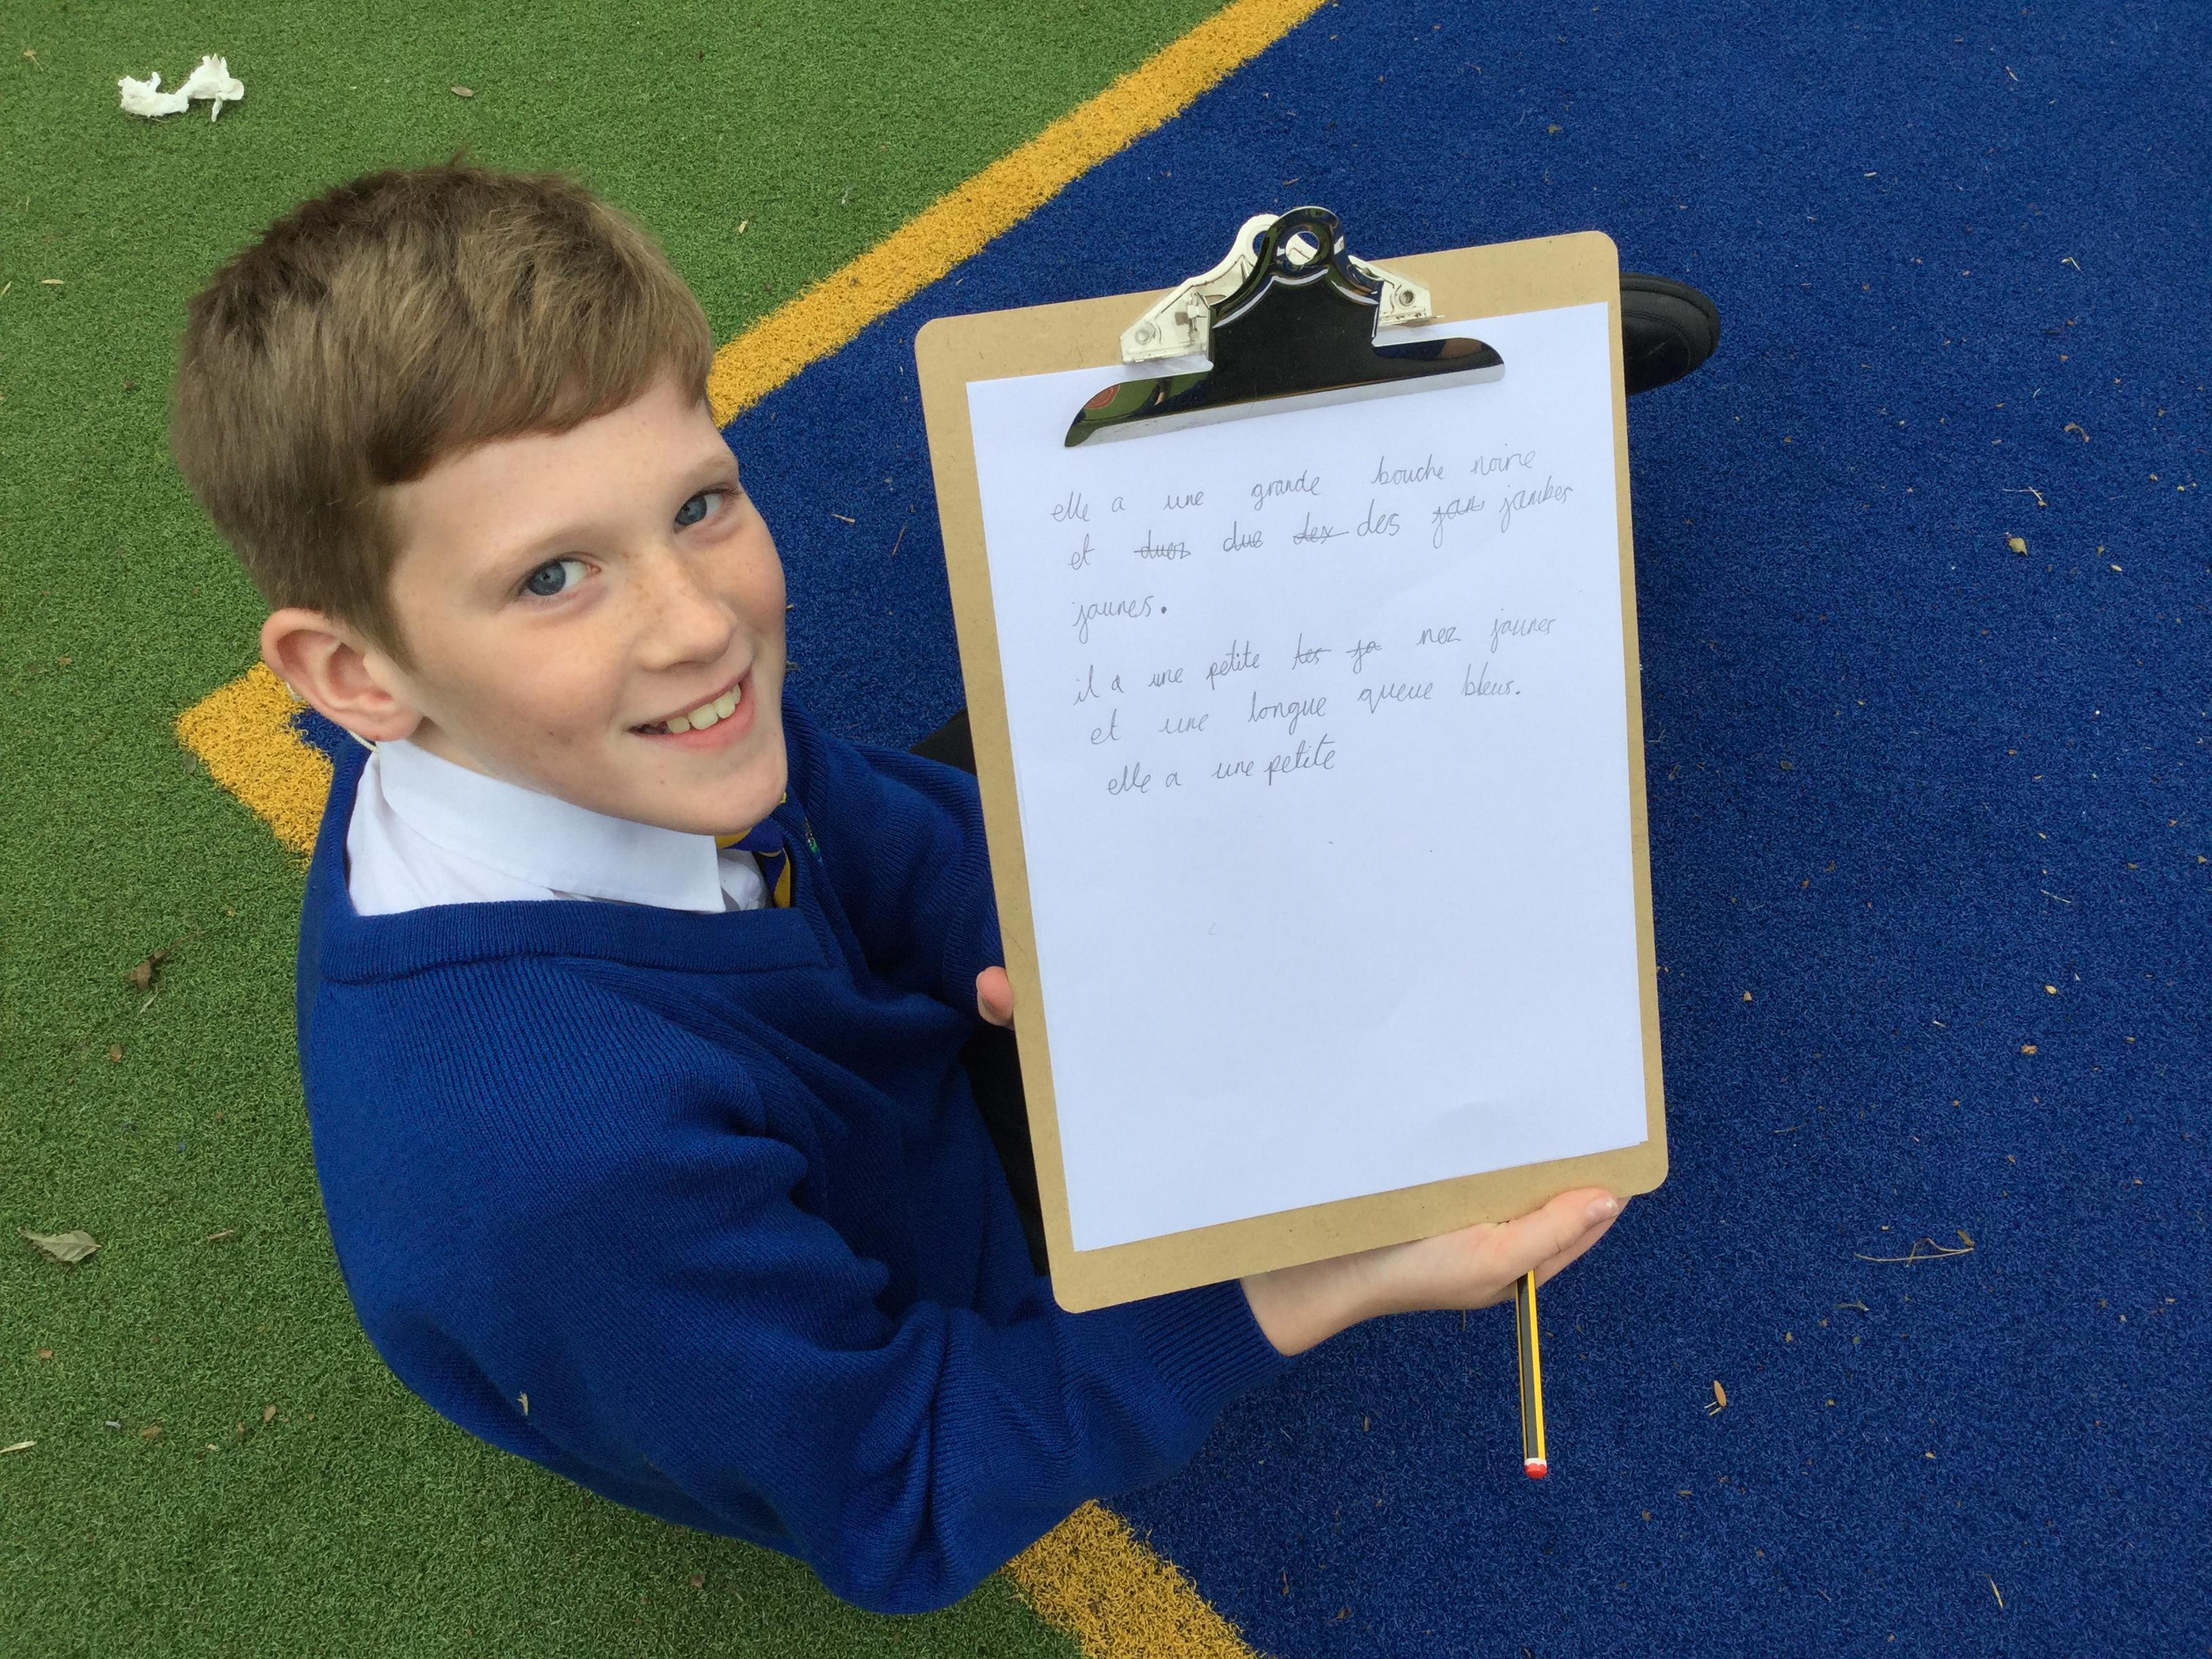 elle a une grande bouche noire
et due des jambes
jaunes.
il a une petite nez jaunes
et une longue queue bleus.
elle a une petite